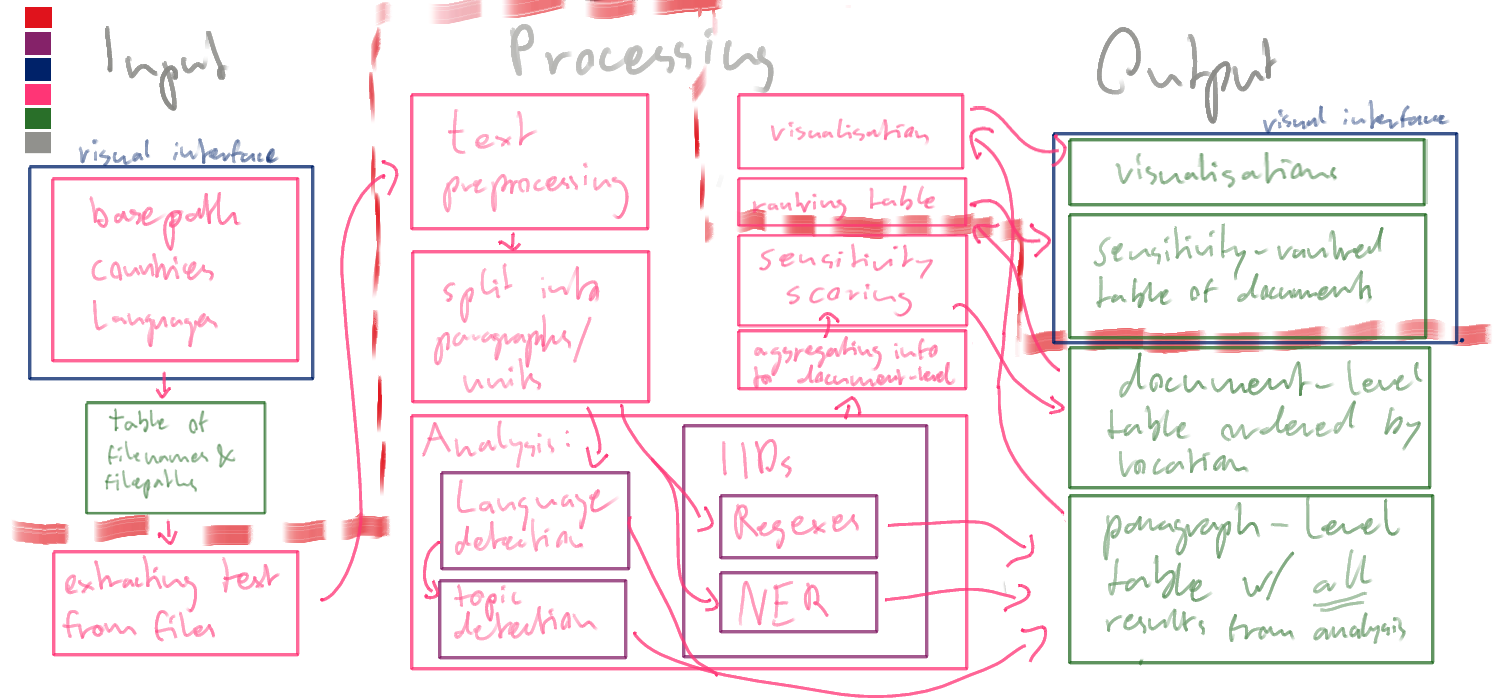 Input
visual interface
basepath
countries
languages
table of
filenames &
filepaths
extracting text
from files
Processing
text
preprocessing
split into
paragraphs/
units
Analysis:
Language
detection
topic
detection
IIDs
Regexes
NER
visualisation
ranking table
sensitivity
scoring
aggregating info
to document-level
Output
visual interface
visualisations
sensitivity-ranked
table of documents
document-level
table ordered by
location
paragraph-level
table w/ all
results from analysis